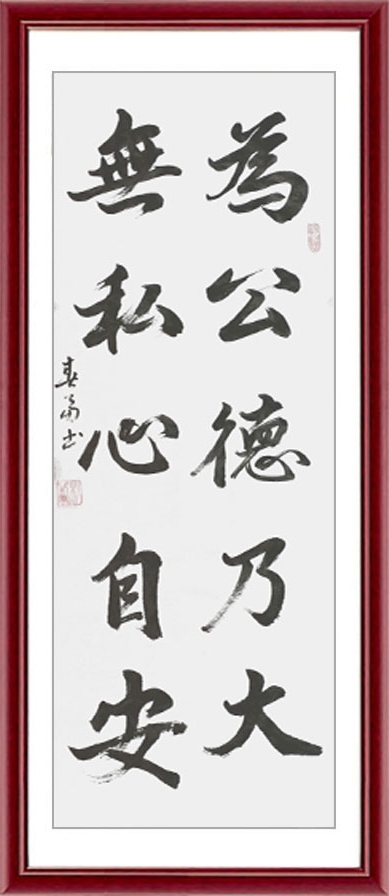 為公德乃大
無私心自安